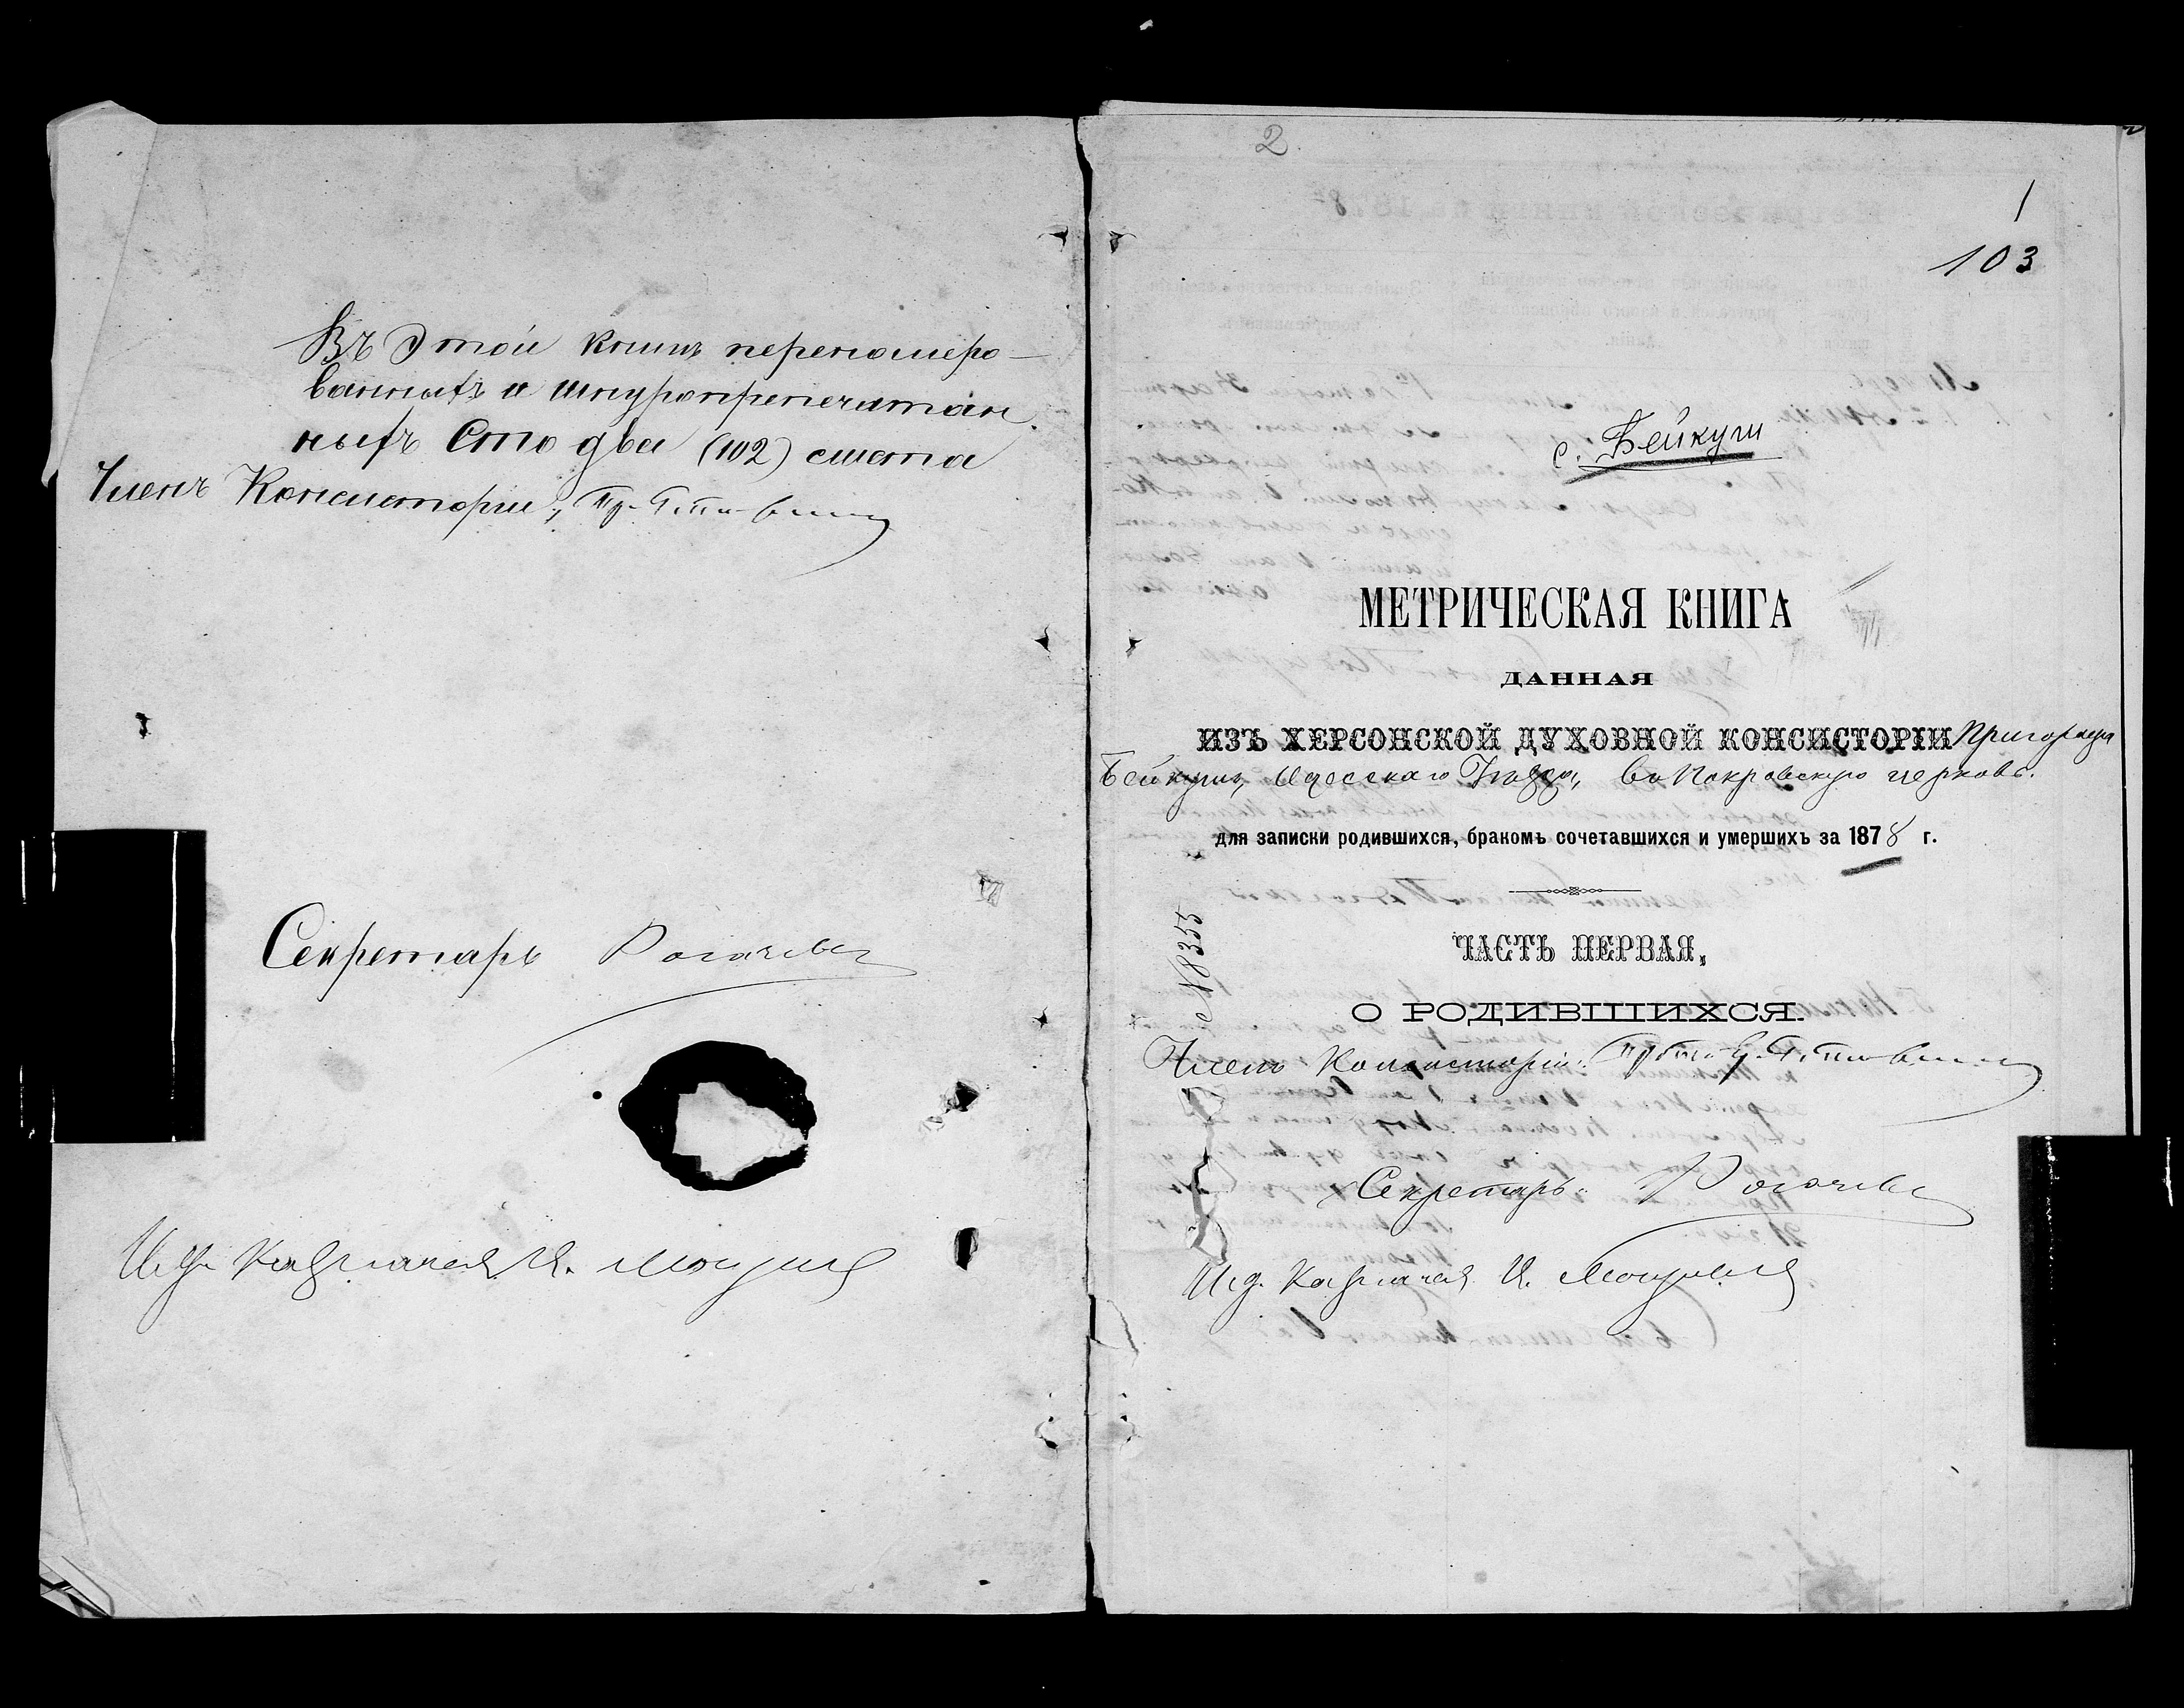 Въ этой книгѣ перенумеро-
ванныхъ и шнуропрепечатан
ныхъ Сто два (102) листа
Членъ Консисторіи,
Секретарь Рогачевъ
И. д. Казначея И.
2
1
103
с. Бейкуши
МЕТРИЧЕСКАЯ КНИГА
ДАННАЯ
ИЗЪ ХЕРСОНСКОЙ ДУХОВНОЙ КОНСИСТОРІИ Пригорода
Бейкуши, Одесскаго Уѣзда, въ Покровскую церковь.
для записки родившихся, бракомъ сочетавшихся и умершихъ за 1878 г.
№ 8355
ЧАСТЬ ПЕРВАЯ,
О РОДИВШИХСЯ.
Членъ Консисторіи:
Секретарь: Рогачевъ
И. д. Казначея И.